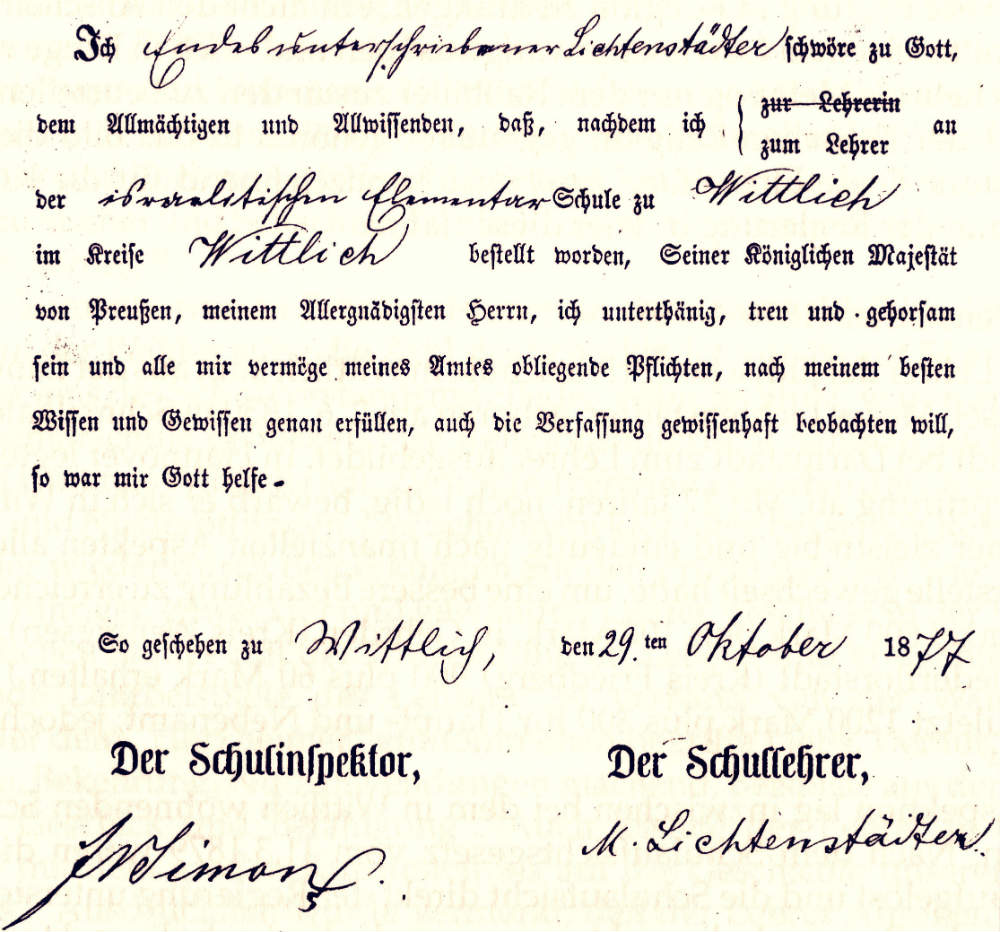 Ich Endes unterschriebener Lichtenstädter schwöre zu Gott,
dem Allmächtigen und Allwissenden, daß, nachdem ich { zur Lehrerin
zum Lehrer an
der israelitischen Elementar Schule zu Wittlich
im Kreise Wittlich bestellt worden, Seiner Königlichen Majestät
von Preußen, meinem Allergnädigsten Herrn, ich unterthänig, treu und gehorsam
sein und alle mir vermöge meines Amtes obliegende Pflichten, nach meinem besten
Wissen und Gewissen genau erfüllen, auch die Verfassung gewissenhaft beobachten will,
so war mir Gott helfe.
So geschehen zu Wittlich, den 29.ten Oktober 1877
Der Schulinspektor, Der Schullehrer,
Simon M. Lichtenstädter.